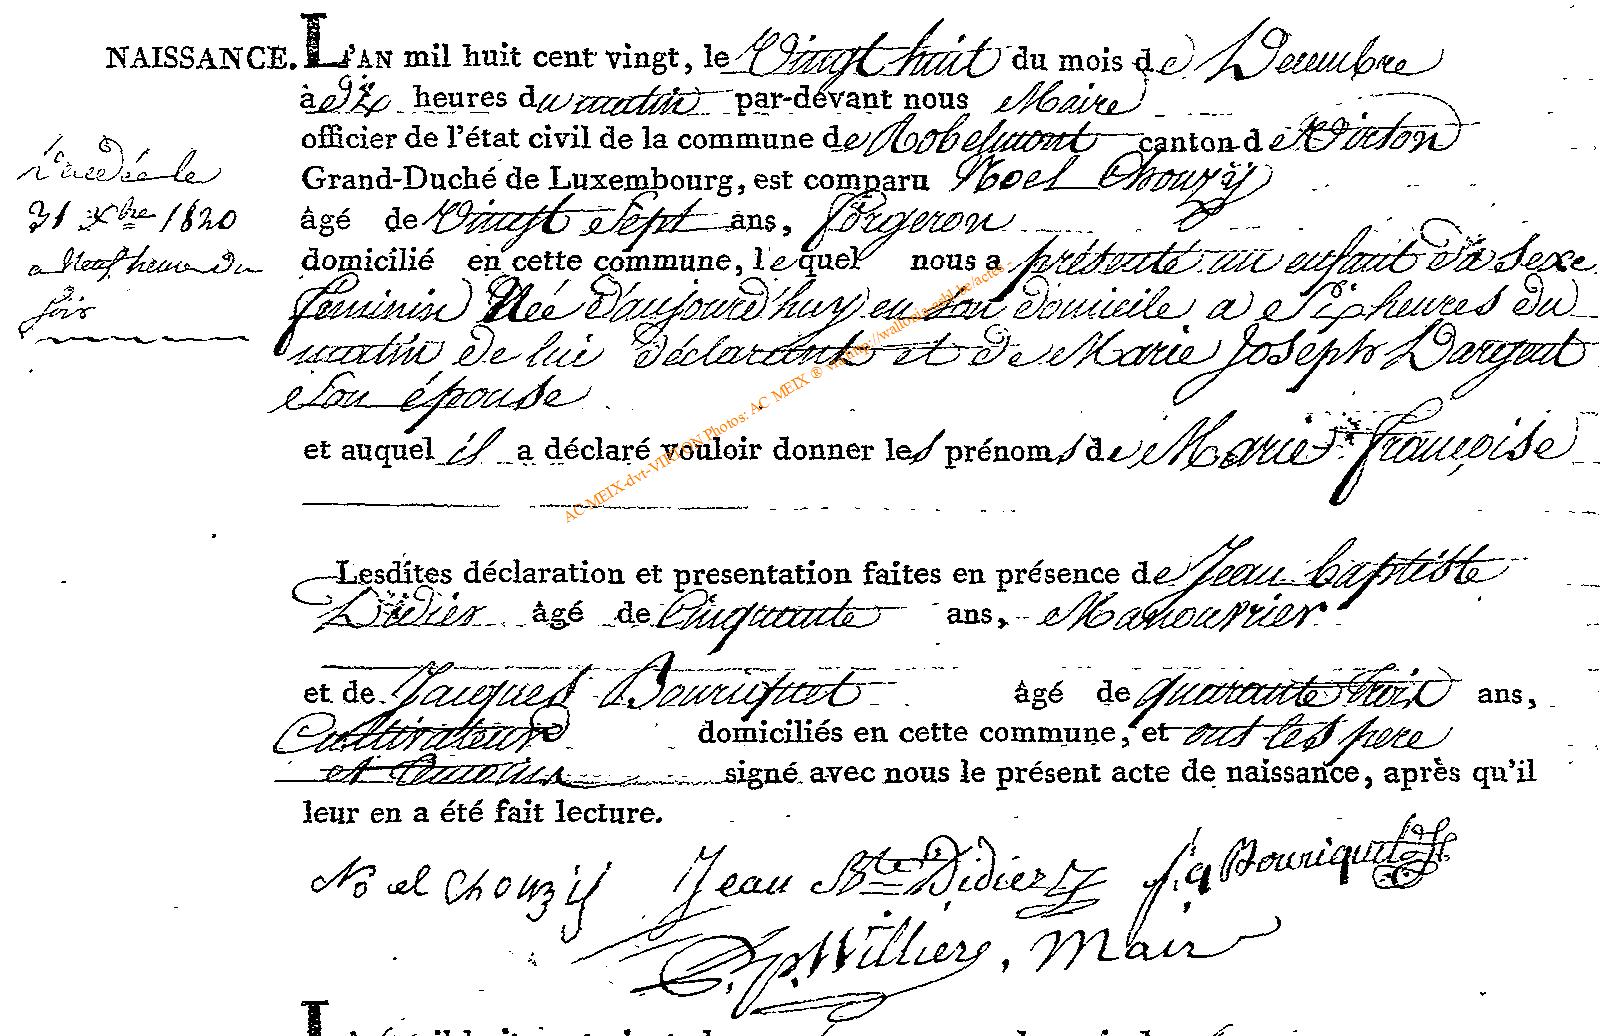 NAISSANCE. L'AN mil huit cent vingt, le Vingt huit du mois de Decembre
à dix heures du matin par-devant nous Maire
officier de l'état civil de la commune de Robelmont canton de Virton
Grand-Duché de Luxembourg, est comparu Noel Chouzÿ
âgé de Vingt Sept ans, forgeron
domicilié en cette commune, lequel nous a présenté un enfant du Sexe
feminin Née d'aujourd'huy en son domicile a Six heures du
matin de lui déclarant et de Marie Joseph Dargent
Son épouse
et auquel il a déclaré vouloir donner les prénoms de Marie françoise
Décédée le
31 Xbre 1820
a Neuf heure du
soir
Lesdites déclaration et presentation faites en présence de Jean baptiste
Didier âgé de Cinquante ans, Manouvrier
et de Jacques Bouriquet âgé de quarante trois ans,
Cultivateur domiciliés en cette commune, et ont les pere
et temoins signé avec nous le présent acte de naissance, après qu'il
leur en a été fait lecture.
Noel Chouzÿ Jean Bte Didier Bouriquet
Williere, Mair
AC-MEIX-dvt-VIRTON Photos: AC MEIX ®